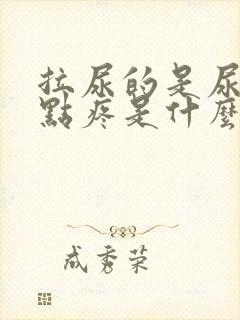 拉尿的是尿
點疼是什麼
成秀荣